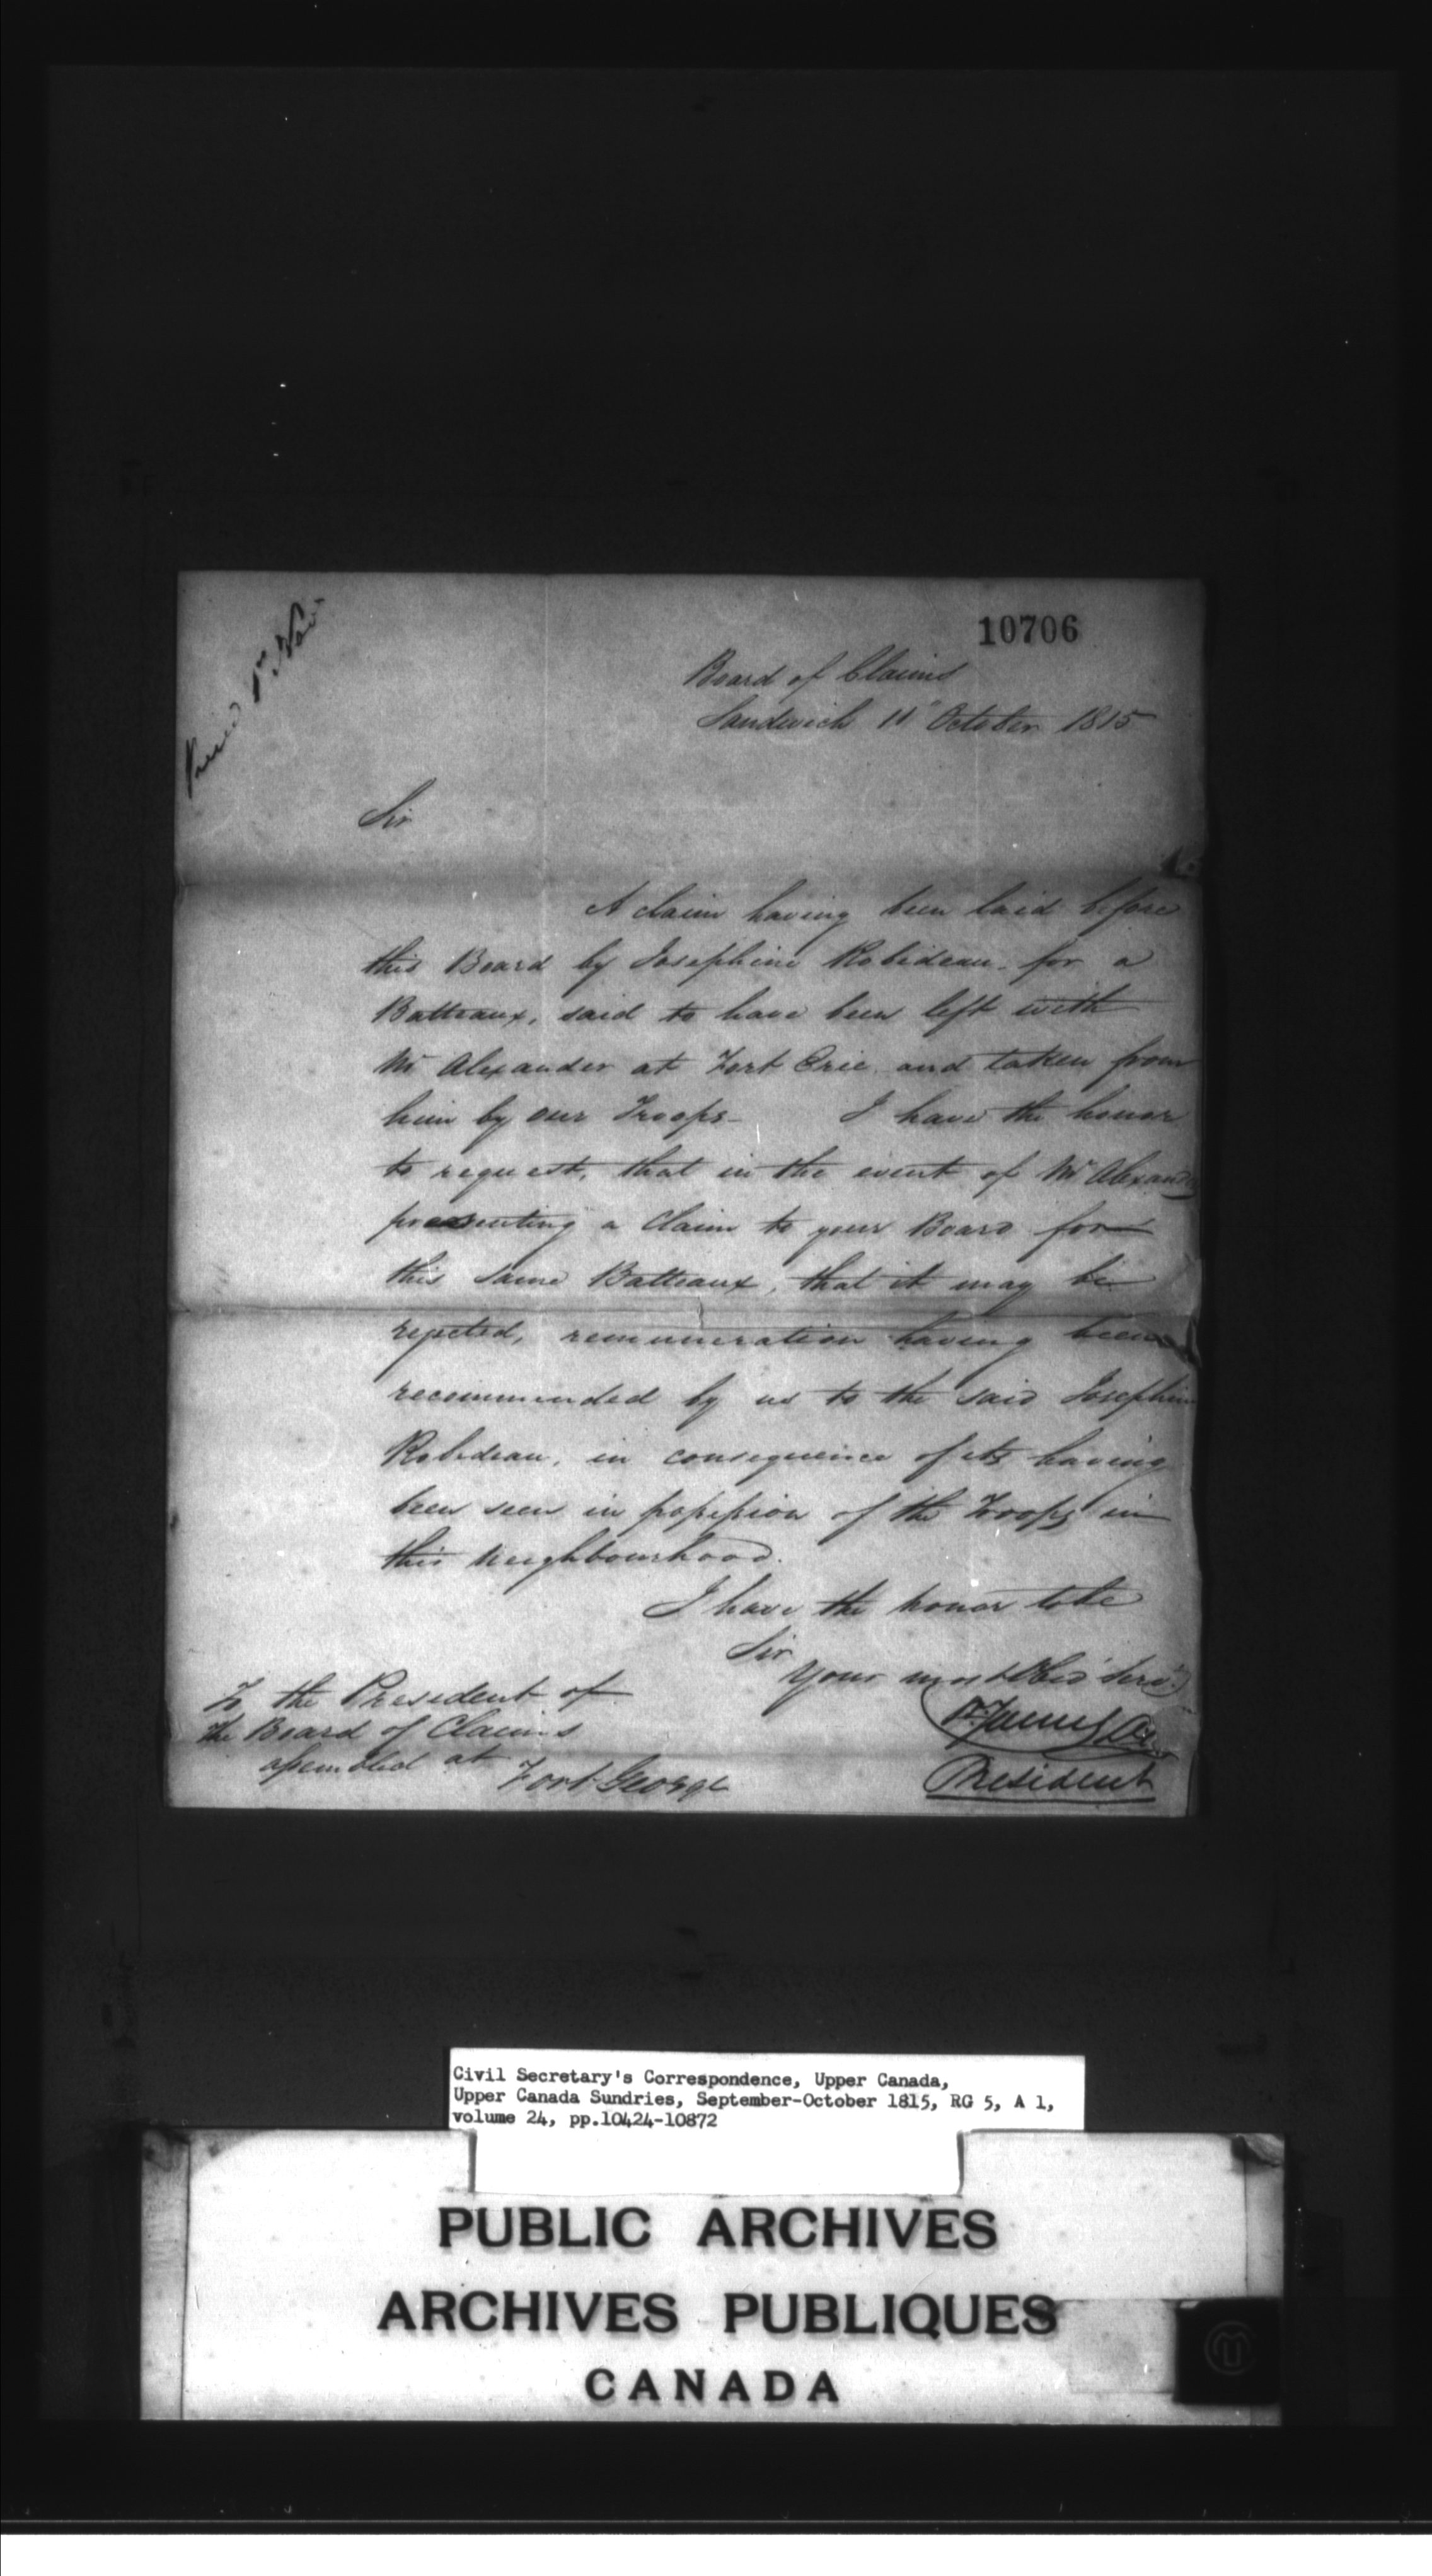 10706
1st Nov
Board of Claims
Sandwich 11" October 1815
Sir
A claim having been laid before
this Board by Josephine Robideau for a
Batteaux, said to have been left with
Mr Alexander at Fort Erie and taken from
him by our Troops- I have the honor
to request, that in the event of Mr Alexander
presenting a Claim to your Board for
this same Batteaux, that it may be
rejected, remuneration having been
recommended by us to the said Josephine
Robideau, in consequence of its having
been seen in possession of the Troops in
this Neighbourhood.
I have the honor to be
Sir
Your most Obed Servt
President
To the President of
the Board of Claims
assembled at Fort George
Civil Secretary's Correspondence, Upper Canada,
Upper Canada Sundries, September-October 1815, RG 5, A 1,
volume 24, pp.10424-10872
PUBLIC ARCHIVES
ARCHIVES PUBLIQUES
CANADA